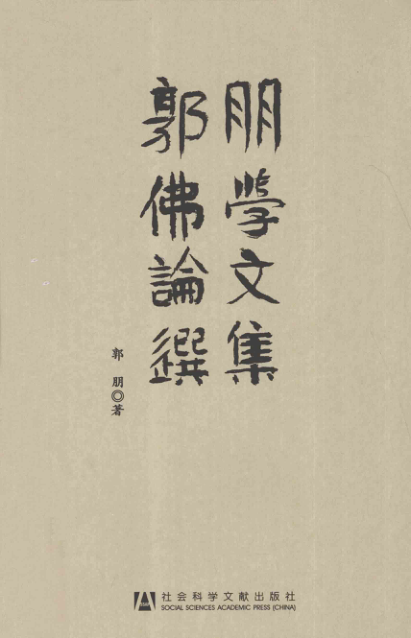 郭朋
佛學
論文
選集
郭朋◎著
社会科学文献出版社
SOCIAL SCIENCES ACADEMIC PRESS (CHINA)